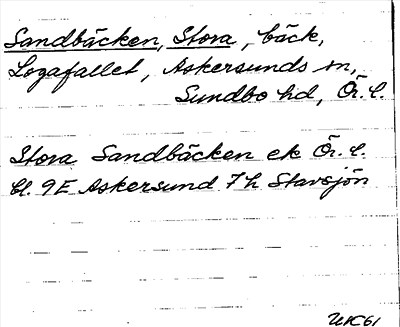 Sandbäcken, Stora, bäck,
Logafallet, Askersunds sn,
Sundbo hd, Ör. l.
Stora Sandbäcken ek Ör. l.
bl. 9E Askersund 7h Stavsjön